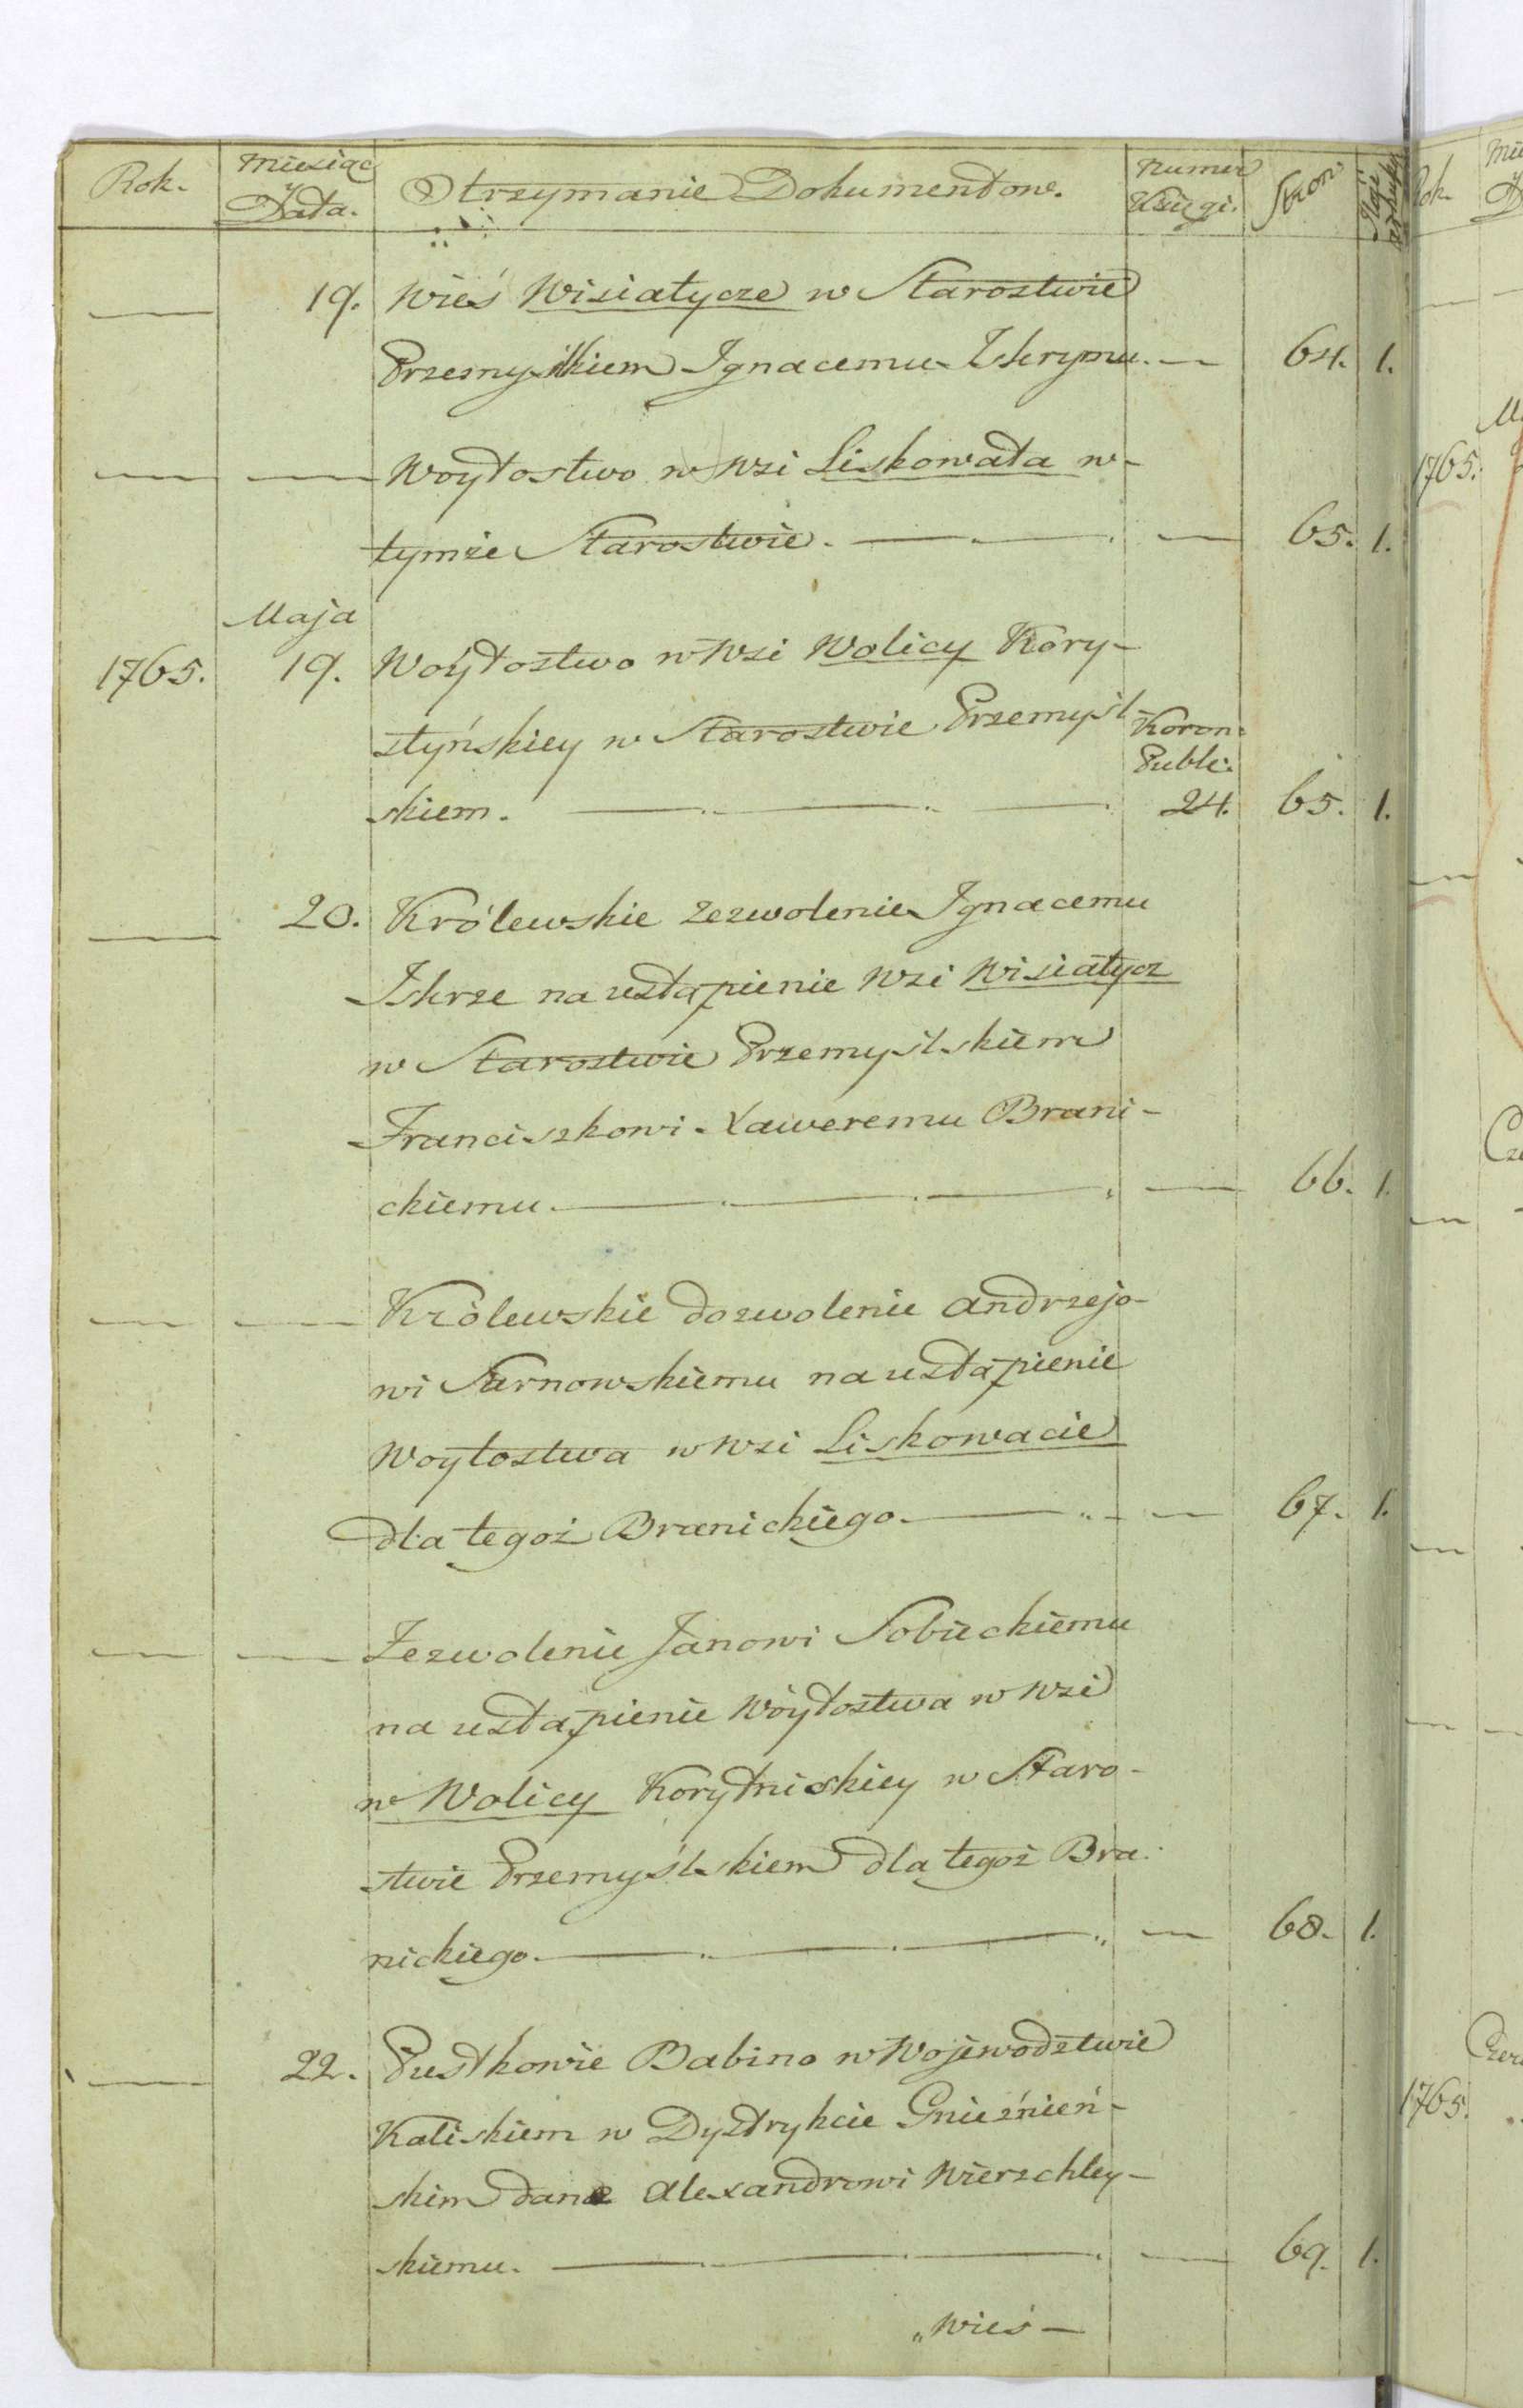 Rok. Miesiąc y Data. Otrzymanie Dokumentow. Numer Księgi. Stron
19. Wieś Wisiatycze w Starostwie
Przemyślkiem Ignacemu Iskrzynu. — 64. 1.
— — Woytostwo w Wsi Liskowata w
tymże Starostwie. — 65. 1.
Maja
1765. 19. Woytostwo w Wsi Wolicy Kory-
styńskiey w Starostwie Przemyśl- Koron:
Publi:
skiem. — 24. 65. 1.
— 20. Królewskie zezwolenie Ignacemu
Iskrze na ustąpienie Wsi Wisiatycz
w Starostwie Przemyślskiem
Franciszkowi Xaweremu Brani-
ckiemu. — 66. 1.
— — Królewskie dozwolenie Andrzejo-
wi Sarnowskiemu na ustąpienie
Woytostwa w Wsi Liskowacie
dla tegoż Branickiego. — 67. 1.
— — Zezwolenie Janowi Sobieckiemu
na ustąpienie Wóytostwa w Wsi
w Wolicy Korytniskiey w Staro-
stwie Przemyślskiem dla tegoż Bra-
nickiego. — 68. 1.
— 22. Pustkowie Babino w Wojewodztwie
Kaliskiem w Dystrykcie Gnieźnień-
skim dane Alexandrowi Wierzchley-
skiemu. — 69. 1.
„Wieś —
1765.
1765.